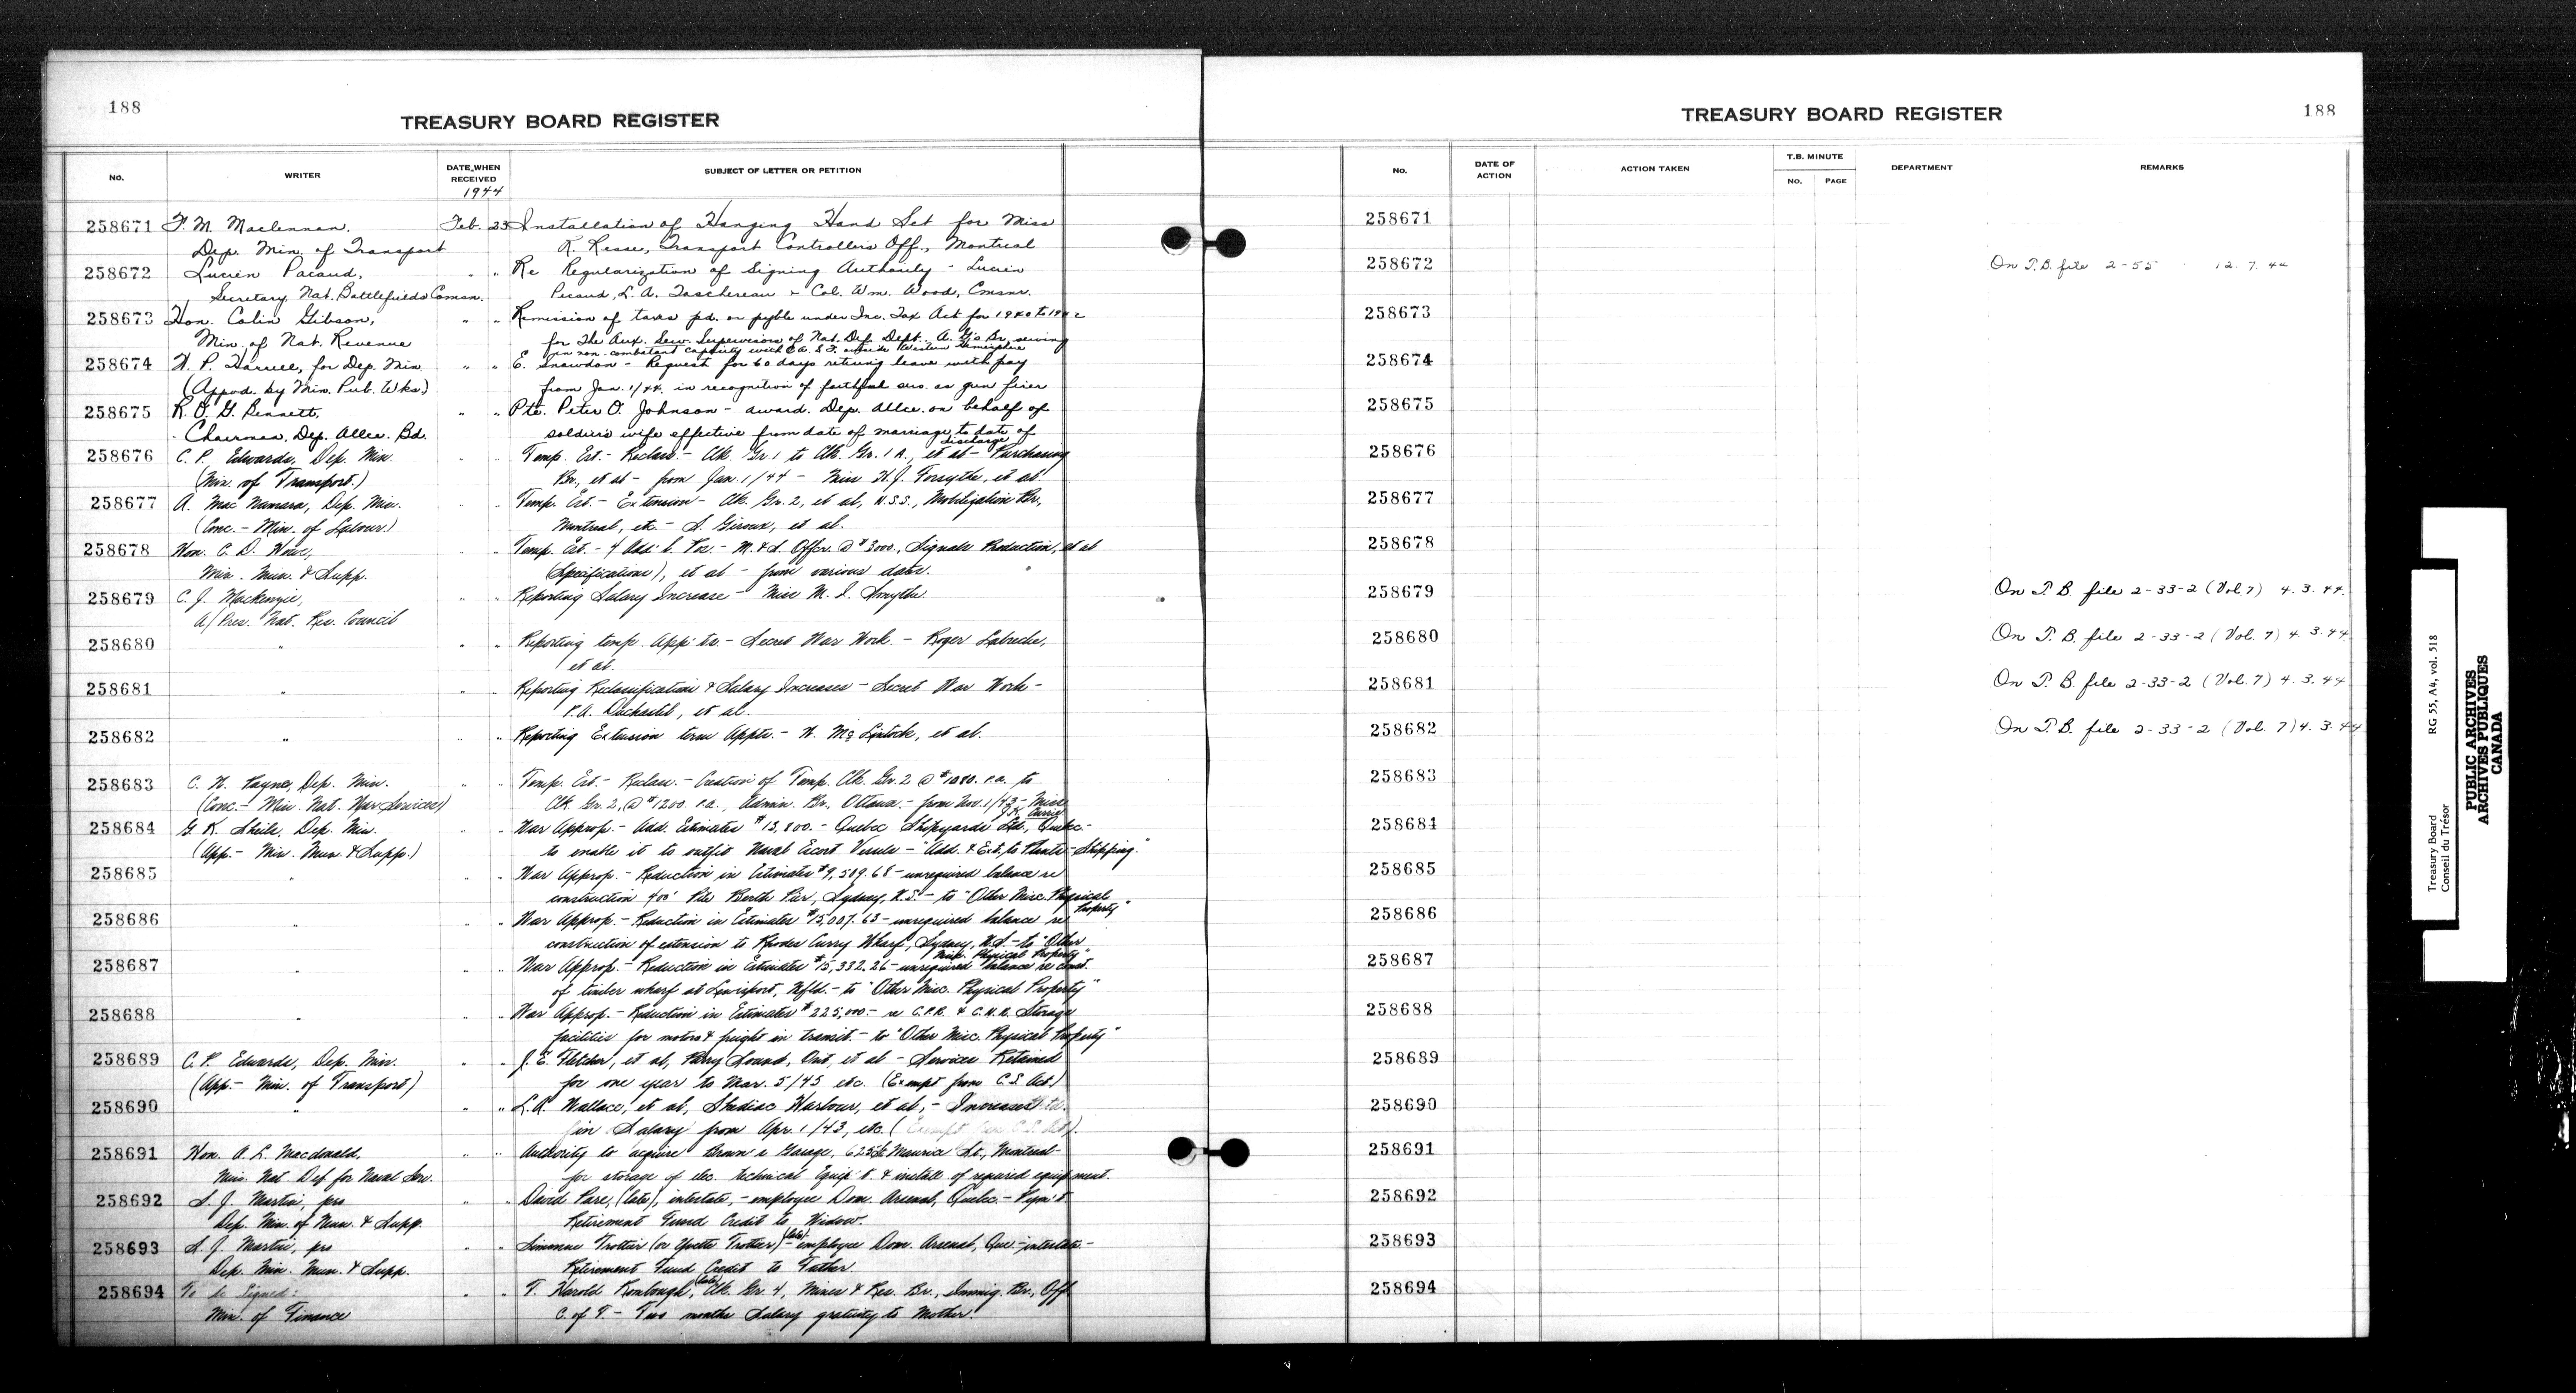 188
TREASURY BOARD REGISTER
NO. WRITER DATE WHEN RECEIVED SUBJECT OF LETTER OR PETITION
1944
258671 F. M. Maclennan, Feb. 23 Installation of Hanging Hand Set for Miss
Dep. Min. of Transport K. Resse, Transport Controllers Off., Montreal
258672 Lucien Pacaud, " " Re Regularization of Signing Authority - Lucien
Secretary Nat. Battlefields Comsn. Pacaud, L. A. Taschereau & Col. Wm. Wood, Cmsnr.
258673 Hon. Colin Gibson, " " Remission of taxes pd. or payble under Inc. Tax Act for 1940 to 1942
Min. of Nat. Revenue for The Aux. Serv. Supervisors of Nat. Def. Dept. A. G's Br. serving
in non-combatant capacity with C.A.S.F. outside Western Hemisphere
258674 H. P. for Dep. Min. " " E. Snowdon - Request for 60 days retiring leave with pay
(Appvd. by Min. Pub. Wks.) from Jan. 1/44 in recognition of faithful serv. as gun firer
258675 R. O. G. Bennett, " " Pte. Peter O. Johnson - award. Dep. Allce. on behalf of
Chairman, Dep. Allce. Bd. soldier's wife effective from date of marriage to date of
discharge
258676 C. P. Edwards, Dep. Min. Temp. Est. - Reclass. - Clk. Gr. 1 to Clk. Gr. 1A., et al - Purchasing
(Min. of Transport.) Br., et al - from Jan. 1/44 - Miss H. J. Forsythe, et al.
258677 A. MacNamara, Dep. Min. Temp. Est. - Extension - Clk. Gr. 2, et al, N.S.S., Mobilization Br.,
(Conc. - Min. of Labour.) Montreal, etc. - A. Giroux, et al.
258678 Hon. C. D. Howe, " " Temp. Est. - 4 Add'l. Pos. - M. & S. Offcr. @ $3000., Signals Production, et al
Min. Mun. & Supp. (Specifications), et al - from various dates.
258679 C. J. Mackenzie, " " Reporting Salary Increase - Miss M. I. Smythe.
A/Pres. Nat. Res. Council
258680 " " " Reporting temp. App'ts. - Secret War Work. - Roger Labreche,
et al.
258681 " " " Reporting Reclassification & Salary Increases - Secret War Work -
P.A. et al.
258682 " " " Reporting Extension term Appts. - et al.
258683 C. H. Payne, Dep. Min. " " Temp. Est. - Reclass. - Creation of Temp. Clk. Gr. 2 @ $1080. p.a. to
(Conc. - Min. Nat. War Services) Clk. Gr. 2, @ $1200. p.a., Admin. Br., Ottawa. - from Nov. 1/43 - Miss
J.K. Currie
258684 G. K. Sheils, Dep. Min. " " War Approp. - Add. Estimates $13,800. - Quebec Shipyards Ltd., Quebec -
(App. - Min. Mun. & Supp.) to enable it to outfit Naval Escort Vessels - "Add. & Ext. to Plants - Shipping."
258685 " " " War Approp. - Reduction in Estimates $9,589.68 - unrequired balance re
construction 400' Pile Berth Pier, Sydney, N.S. - to "Other Misc. Physical
Property"
258686 " " " War Approp. - Reduction in Estimates $15,007.63 - unrequired balance re
construction of extension to Rhodes Curry Wharf, Sydney, N.S. - to "Other
Misc. Physical Property"
258687 " " " War Approp. - Reduction in Estimates $15,332.26 - unrequired balance re const.
of timber wharf at Lewisport, Nfld. - to "Other Misc. Physical Property"
258688 " " " War Approp. - Reduction in Estimates $225,000. - re C.P.R. & C.N.R. Storage
facilities for motors & freight in transit - to "Other Misc. Physical Property"
258689 C. P. Edwards, Dep. Min. " " J. E. Fletcher, et al, Parry Sound, Ont, et al - Services Retained
(App. - Min. of Transport) for one year to Mar. 5/45 etc. (Exempt from C.S. Act.)
258690 " " " L. A. Wallace, et al, Shediac Harbour, et al, - Increases
in Salary from Apr. 1/43, etc. (
258691 Hon. A. L. Macdonald, " " Authority to acquire Brown's Garage, 625 St. Maurice St., Montreal -
Min. Nat. Def. for Naval Serv. for storage of elec. technical Equip't. & install. of repaired equipment.
258692 S. J. Martin, pro " " David Pare, (late), intestate, - employee Dom. Arsenal, Quebec. - Paym't
Dep. Min. of Mun. & Supp. Retirement Fund Credit to Widow.
258693 S. J. Martin, pro " " Simonne Trottier (or Yvette Trottier) (late) - employee Dom. Arsenal, Que. - intestate -
Dep. Min. Mun. & Supp. Retirement Fund Credit to Father.
258694 To be Signed: " " T. Harold (late) Clk. Gr. 4, Mines & Res. Br., Immig. Br., Off.
Min. of Finance C. of T. - Two months Salary gratuity to Mother.
TREASURY BOARD REGISTER
188
NO. DATE OF ACTION ACTION TAKEN T.B. MINUTE NO. PAGE DEPARTMENT REMARKS
258671
258672 On T.B. file 2-55 12.7.44
258673
258674
258675
258676
258677
258678
258679 On T.B. file 2-33-2 (Vol. 7) 4.3.44.
258680 On T.B. file 2-33-2 (Vol. 7) 4.3.44.
258681 On T.B. file 2-33-2 (Vol. 7) 4.3.44
258682 On T.B. file 2-33-2 (Vol. 7) 4.3.44
258683
258684
258685
258686
258687
258688
258689
258690
258691
258692
258693
258694
Treasury Board RG 55, A4, vol. 518
Conseil du Trésor
PUBLIC ARCHIVES
ARCHIVES PUBLIQUES
CANADA